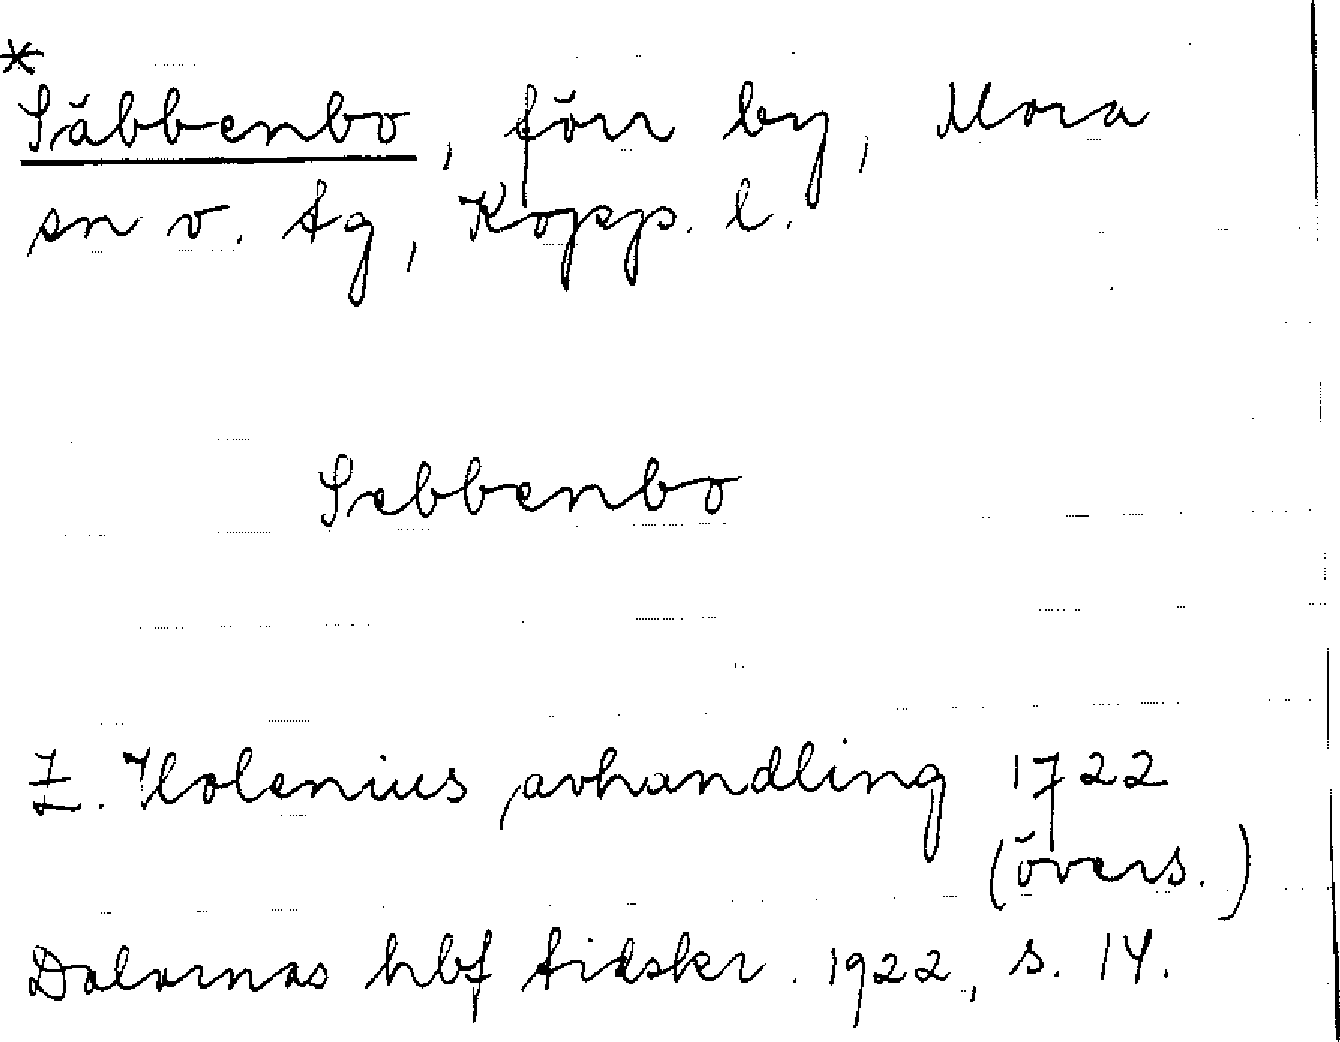 *
Säbbenbo, förr by, Mora
sn v. tg, Kopp. l.
Sebbenbo
Z. Holenius avhandling 1722
(övers.)
Dalarnas hbf tidskr. 1922, s. 14.